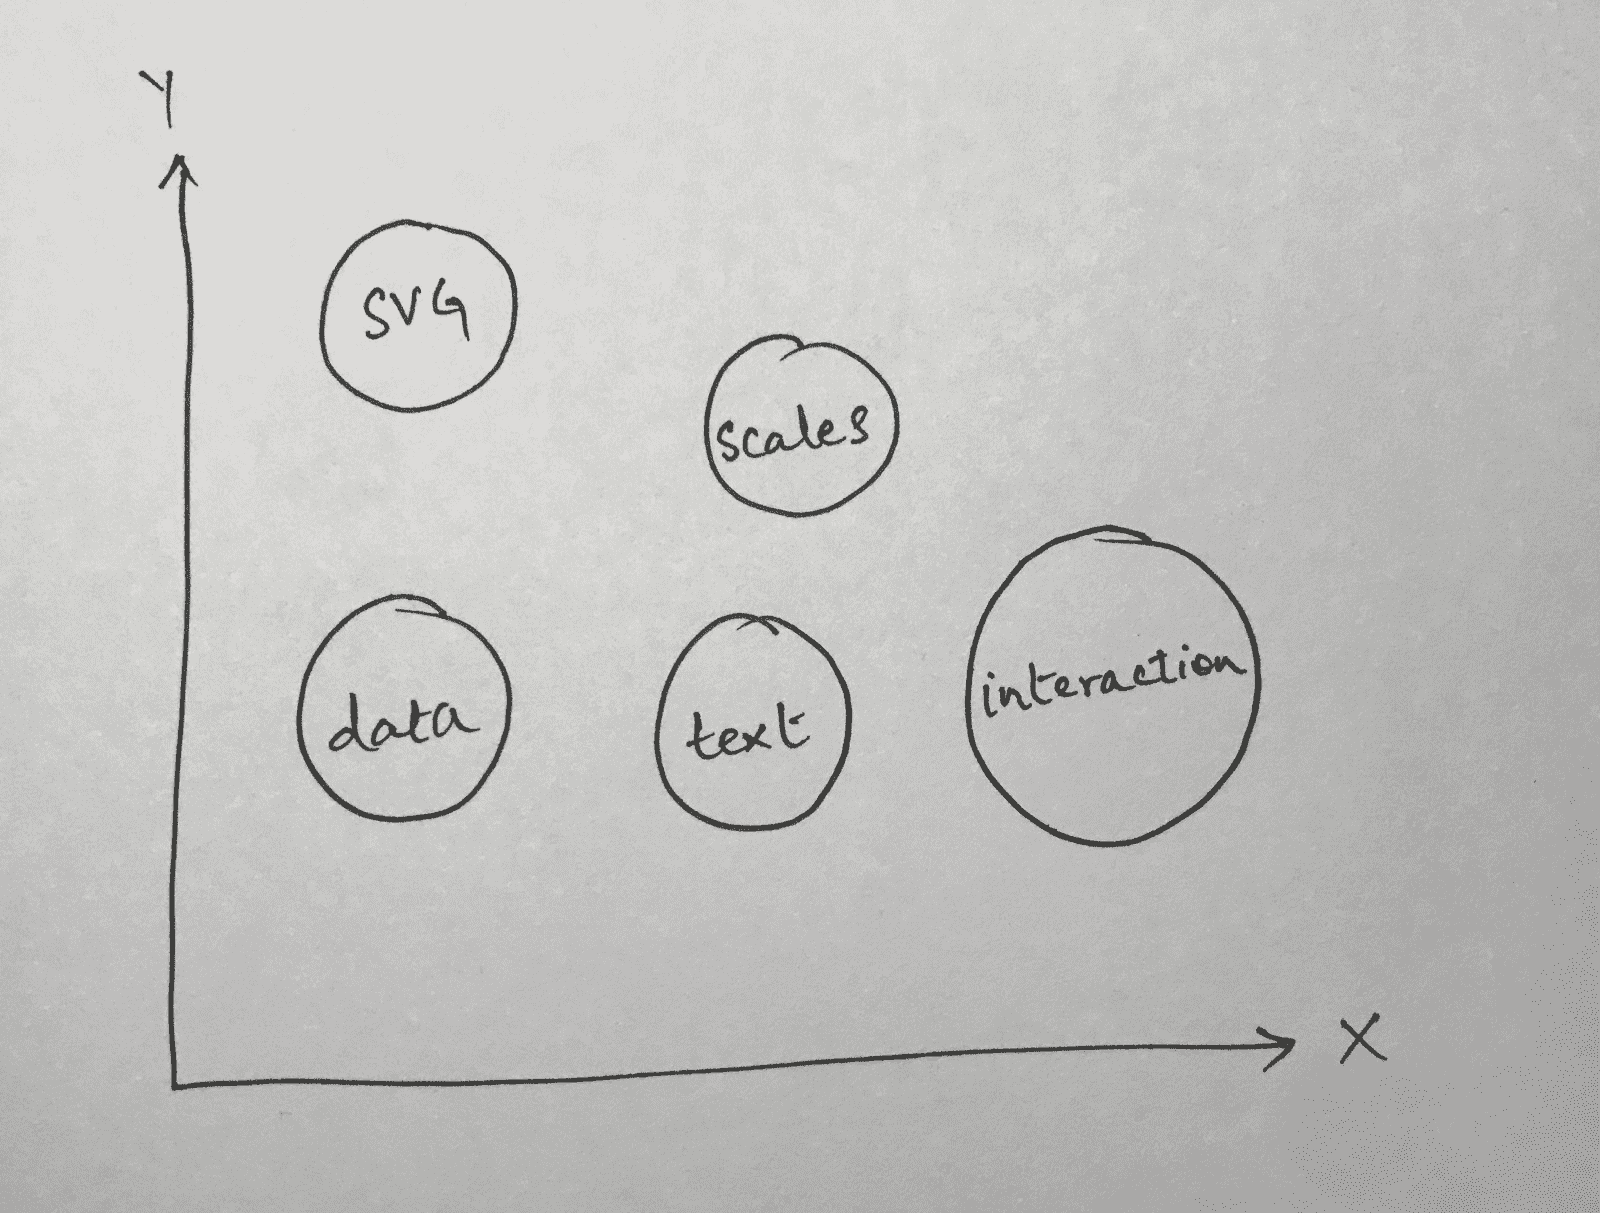 Y
SVG
scales
data
text
interaction
X